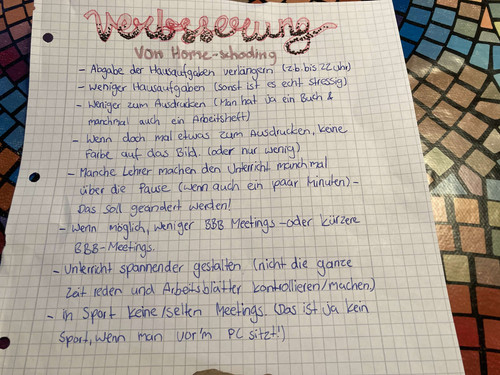 Verbesserung
Von Home-schooling
- Abgabe der Hausaufgaben verlängern (z.b. bis 22 uhr)
- weniger Hausaufgaben (sonst ist es echt stressig)
- weniger zum Ausdrucken (Man hat ja ein Buch &
manchmal auch ein Arbeitsheft)
- Wenn doch mal etwas zum Ausdrucken, keine
Farbe auf das Bild. (oder nur wenig)
- Manche Lehrer machen den Unterricht manchmal
über die Pause (wenn auch ein paar Minuten) -
Das soll geändert werden!
- Wenn möglich, weniger BBB Meetings - oder kürzere
BBB-Meetings.
- Unterricht spannender gestalten (nicht die ganze
Zeit reden und Arbeitsblätter kontrollieren/machen.)
- In Sport keine/selten Meetings. (Das ist ja kein
Sport, wenn man vor'm PC sitzt!)